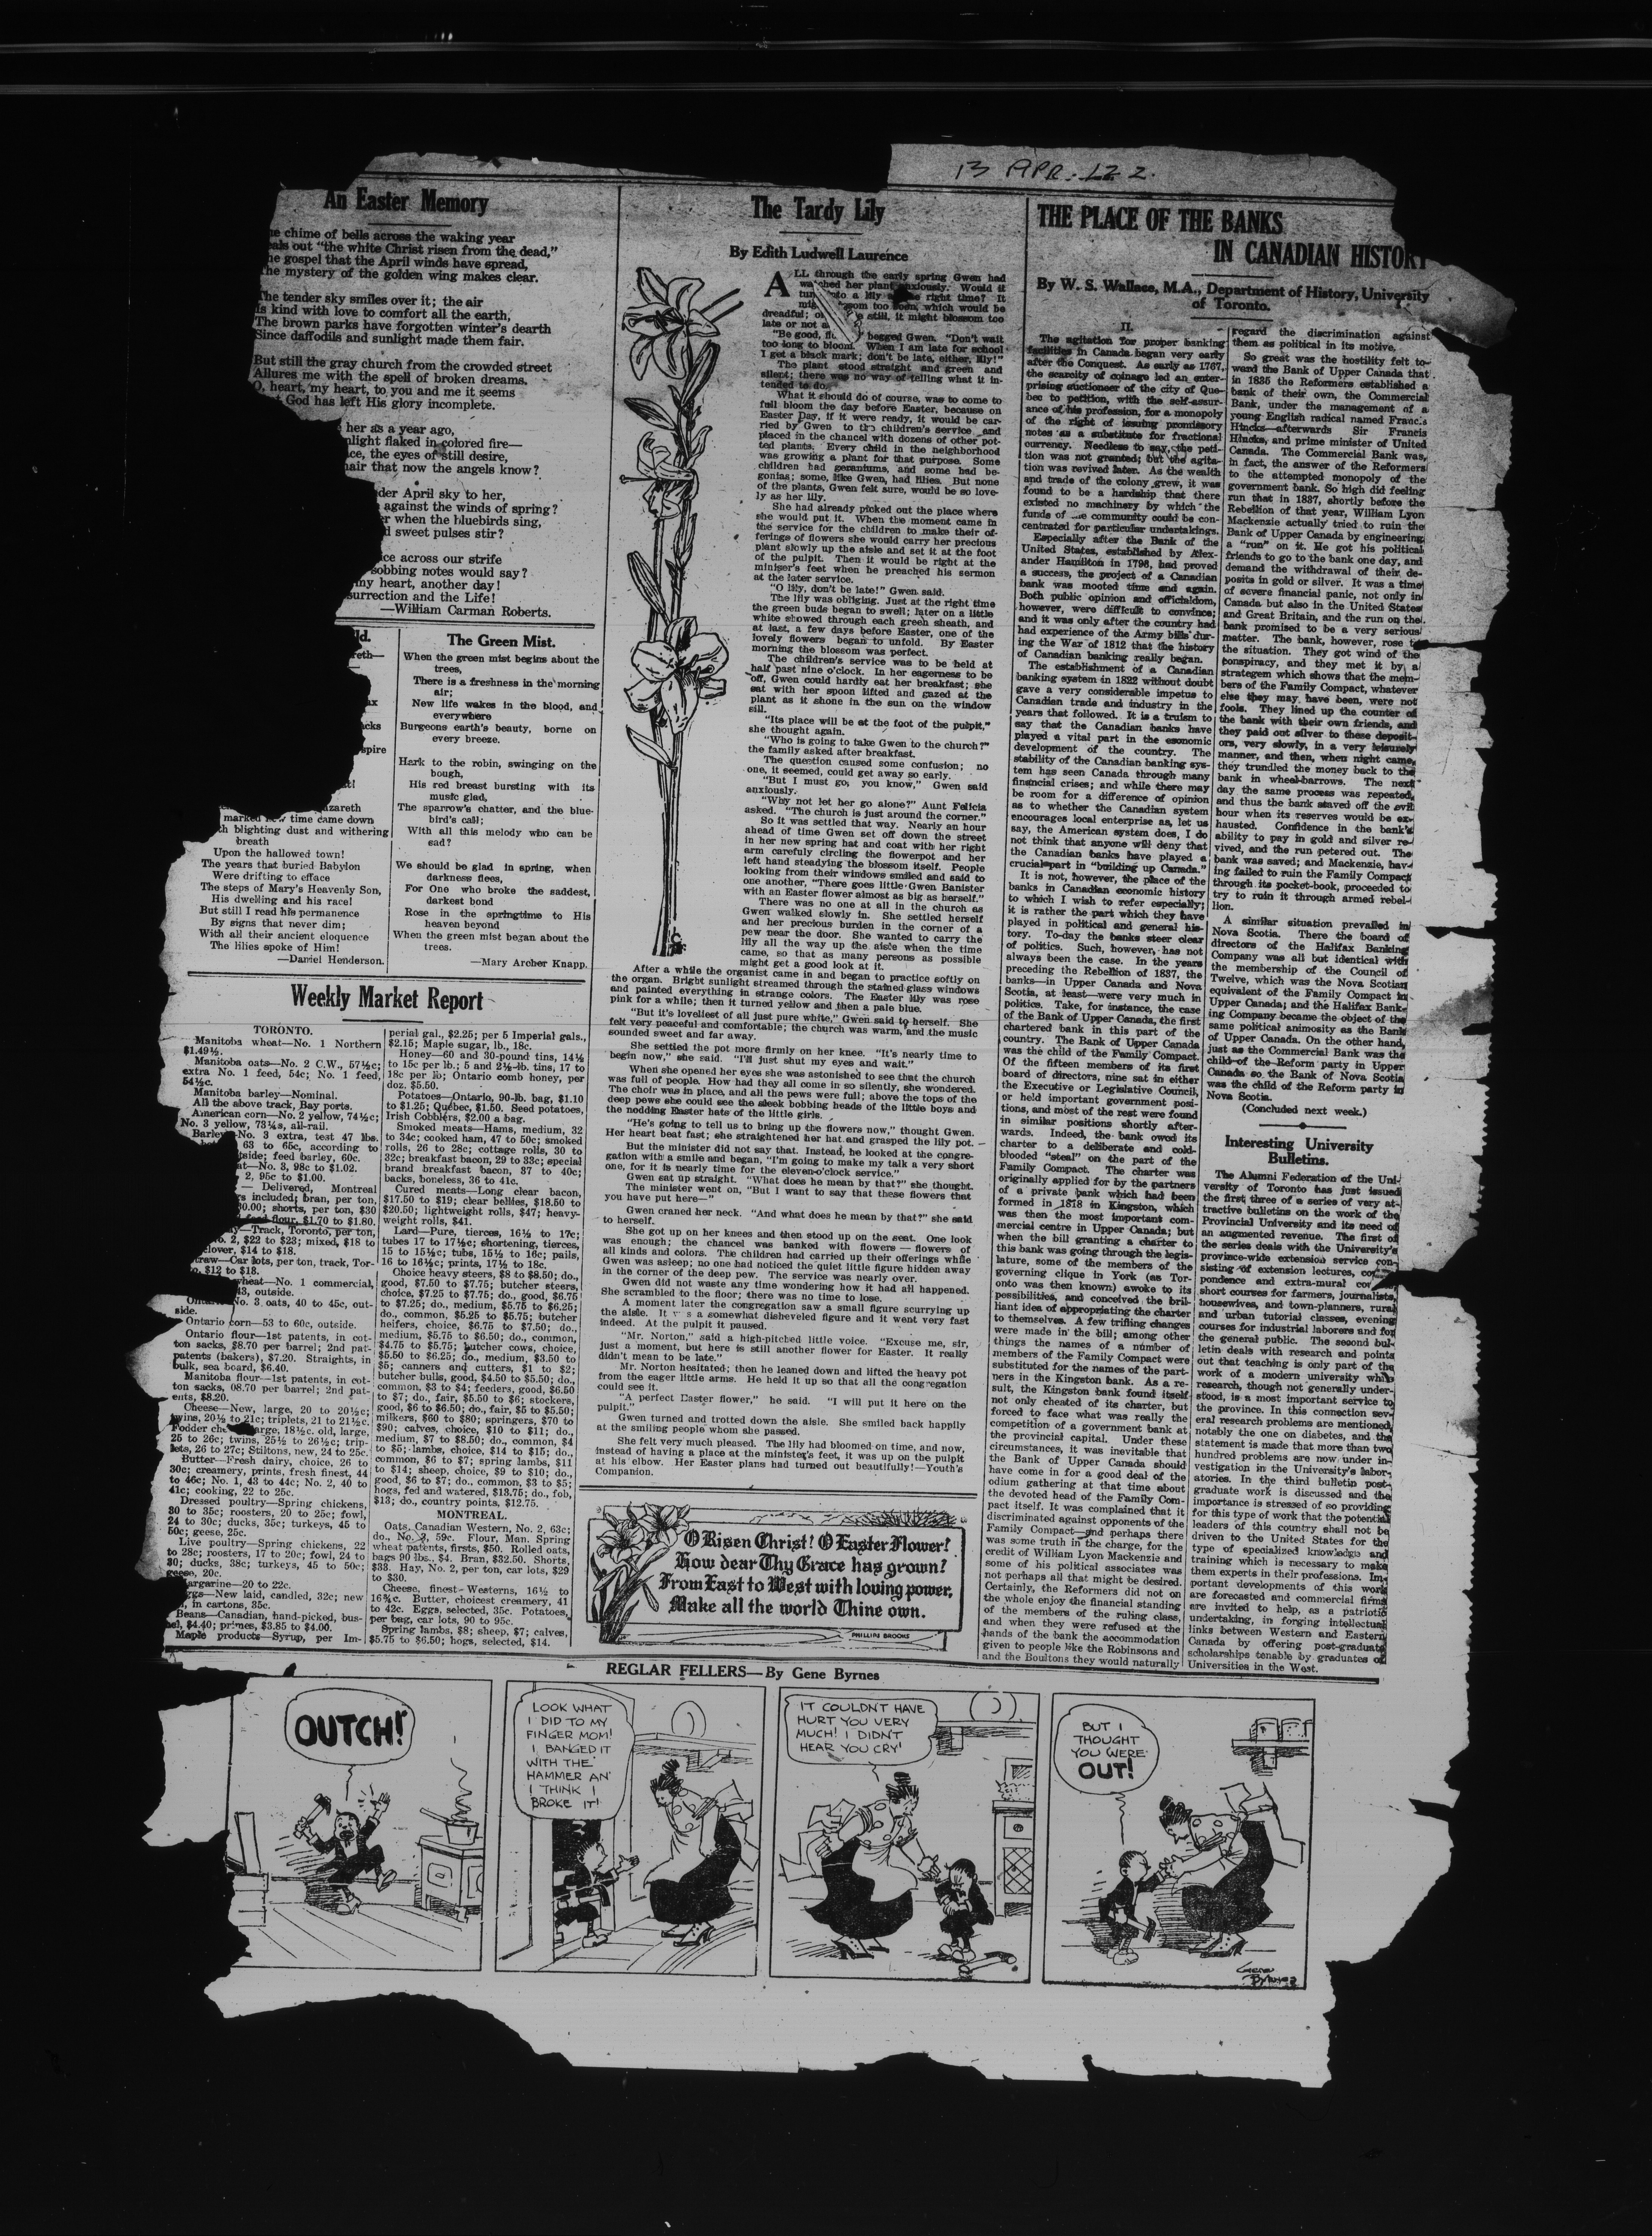 13 APR. 122.
An Easter Memory
chime of bells across the waking year
out "the white Christ risen from the dead,"
gospel that the April winds have spread,
The mystery of the golden wing makes clear.
The tender sky smiles over it; the air
Is kind with love to comfort all the earth,
The brown parks have forgotten winter's dearth
Since daffodils and sunlight made them fair.
But still the gray church from the crowded street
Allures me with the spell of broken dreams.
O, heart, my heart, to you and me it seems
God has left His glory incomplete.
her as a year ago,
flaked in colored fire—
the eyes of still desire,
that now the angels know?
April sky to her,
against the winds of spring?
when the bluebirds sing,
sweet pulses stir?
across our strife
sobbing notes would say?
my heart, another day!
and the Life!
—William Carman Roberts.
time came down
blighting dust and withering
breath
Upon the hallowed town!
The years that buried Babylon
Were drifting to efface
The steps of Mary's Heavenly Son,
His dwelling and his race!
But still I read his permanence
By signs that never dim;
With all their ancient eloquence
The lilies spoke of Him!
—Daniel Henderson.
The Green Mist.
When the green mist begins about the
trees,
There is a freshness in the morning
air;
New life wakes in the blood, and
everywhere
Burgeons earth's beauty, borne on
every breeze.
Hark to the robin, swinging on the
bough,
His red breast bursting with its
music glad,
The sparrow's chatter, and the blue-
bird's call;
With all this melody who can be
sad?
We should be glad in spring, when
darkness flees,
For One who broke the saddest,
darkest bond
Rose in the springtime to His
heaven beyond
When the green mist began about the
trees.
—Mary Archer Knapp.
Weekly Market Report
TORONTO.
Manitoba wheat—No. 1 Northern
$1.49½.
Manitoba oats—No. 2 C.W., 57½c;
extra No. 1 feed, 54c; No. 1 feed,
54½c.
Manitoba barley—Nominal.
All the above track, Bay ports.
American corn—No. 2 yellow, 74½c;
No. 3 yellow, 73¼s, all-rail.
Barley—No. 3 extra, test 47 lbs.
63 to 65c, according to
feed barley, 60c.
No. 3, 98c to $1.02.
2, 95c to $1.00.
— Delivered, Montreal
included; bran, per ton,
shorts, per ton, $30
flour, $1.70 to $1.80.
—Track, Toronto, per ton,
2, $22 to $23; mixed, $18 to
clover, $14 to $18.
—Car lots, per ton, track, Tor-
$12 to $18.
wheat—No. 1 commercial,
outside.
No. 3 oats, 40 to 45c, out-
side.
Ontario corn—53 to 60c, outside.
Ontario flour—1st patents, in cot-
ton sacks, $8.70 per barrel; 2nd pat-
patents (bakers), $7.20. Straights, in
bulk, sea board, $6.40.
Manitoba flour—1st patents, in cot-
ton sacks, 08.70 per barrel; 2nd pat-
ents, $8.20.
Cheese—New, large, 20 to 20½c;
twins, 20½ to 21c; triplets, 21 to 21½c.
Fodder large, 18½c. old, large,
25 to 26c; twins, 25½ to 26½c; trip-
lets, 26 to 27c; Stiltons, new, 24 to 25c.
Butter—Fresh dairy, choice, 26 to
30c; creamery, prints, fresh finest, 44
to 46c; No. 1, 43 to 44c; No. 2, 40 to
41c; cooking, 22 to 25c.
Dressed poultry—Spring chickens,
30 to 35c; roosters, 20 to 25c; fowl,
24 to 30c; ducks, 35c; turkeys, 45 to
50c; geese, 25c.
Live poultry—Spring chickens, 22
to 28c; roosters, 17 to 20c; fowl, 24 to
30; ducks, 38c; turkeys, 45 to 50c;
geese, 20c.
Margarine—20 to 22c.
Eggs—New laid, candled, 32c; new
in cartons, 35c.
Beans—Canadian, hand-picked, bus-
hel, $4.40; primes, $3.85 to $4.00.
Maple products—Syrup, per Im-
perial gal., $2.25; per 5 Imperial gals.,
$2.15; Maple sugar, lb., 18c.
Honey—60 and 30-pound tins, 14½
to 15c per lb.; 5 and 2½-lb. tins, 17 to
18c per lb; Ontario comb honey, per
doz. $5.50.
Potatoes—Ontario, 90-lb. bag, $1.10
to $1.25; Quebec, $1.50. Seed potatoes,
Irish Cobblers, $2.00 a bag.
Smoked meats—Hams, medium, 32
to 34c; cooked ham, 47 to 50c; smoked
rolls, 26 to 28c; cottage rolls, 30 to
32c; breakfast bacon, 29 to 33c; special
brand breakfast bacon, 37 to 40c;
backs, boneless, 36 to 41c.
Cured meats—Long clear bacon,
$17.50 to $19; clear bellies, $18.50 to
$20.50; lightweight rolls, $47; heavy-
weight rolls, $41.
Lard—Pure, tierces, 16½ to 17c;
tubes 17 to 17½c; shortening, tierces,
15 to 15½c; tubs, 15½ to 16c; pails,
16 to 16½c; prints, 17½ to 18c.
Choice heavy steers, $8 to $8.50; do.,
good, $7.50 to $7.75; butcher steers,
choice, $7.25 to $7.75; do., good, $6.75
to $7.25; do., medium, $5.75 to $6.25;
do., common, $5.25 to $5.75; butcher
heifers, choice, $6.75 to $7.50; do.,
medium, $5.75 to $6.50; do., common,
$4.75 to $5.75; butcher cows, choice,
$5.50 to $6.25; do., medium, $3.50 to
$5; canners and cutters, $1 to $2;
butcher bulls, good, $4.50 to $5.50; do.,
common, $3 to $4; feeders, good, $6.50
to $7; do., fair, $5.50 to $6; stockers,
good, $6 to $6.50; do., fair, $5 to $5.50;
milkers, $60 to $80; springers, $70 to
$90; calves, choice, $10 to $11; do.,
medium, $7 to $8.50; do., common, $4
to $5; lambs, choice, $14 to $15; do.,
common, $6 to $7; spring lambs, $11
to $14; sheep, choice, $9 to $10; do.,
good, $6 to $7; do., common, $3 to $5;
hogs, fed and watered, $13.75; do., fob,
$13; do., country points, $12.75.
MONTREAL.
Oats, Canadian Western, No. 2, 63c;
do., No. 3, 59c. Flour, Man. Spring
wheat patents, firsts, $50. Rolled oats,
bags 90 lbs., $4. Bran, $32.50. Shorts,
$33. Hay, No. 2, per ton, car lots, $29
to $30.
Cheese, finest Westerns, 16½ to
16¾c. Butter, choicest creamery, 41
to 42c. Eggs, selected, 35c. Potatoes,
per bag, car lots, 90 to 95c.
Spring lambs, $8; sheep, $7; calves,
$5.75 to $6.50; hogs, selected, $14.
The Tardy Lily
By Edith Ludwell Laurence
ALL through the early spring Gwen had
watched her plant anxiously. Would it
to a lily right time? It
too soon, which would be
dreadful; still, it might blossom too
late or not
"Be good, begged Gwen. "Don't wait
too long to bloom. When I am late for school
I get a black mark; don't be late, either, lily!"
The plant stood straight and green and
silent; there was no way of telling what it in-
tended to do.
What it should do of course, was to come to
full bloom the day before Easter, because on
Easter Day, if it were ready, it would be car-
ried by Gwen to the children's service and
placed in the chancel with dozens of other pot-
ted plants. Every child in the neighborhood
was growing a plant for that purpose. Some
children had geraniums, and some had be-
gonias; some, like Gwen, had lilies. But none
of the plants, Gwen felt sure, would be so love-
ly as her lily.
She had already picked out the place where
she would put it. When the moment came in
the service for the children to make their of-
ferings of flowers she would carry her precious
plant slowly up the aisle and set it at the foot
of the pulpit. Then it would be right at the
miniser's feet when he preached his sermon
at the later service.
"O lily, don't be late!" Gwen said.
The lily was obliging. Just at the right time
the green buds began to swell; later on a little
white showed through each green sheath, and
at last, a few days before Easter, one of the
lovely flowers began to unfold. By Easter
morning the blossom was perfect.
The children's service was to be held at
half past nine o'clock. In her eagerness to be
off, Gwen could hardly eat her breakfast; she
sat with her spoon lifted and gazed at the
plant as it shone in the sun on the window
sill.
"Its place will be at the foot of the pulpit,"
she thought again.
"Who is going to take Gwen to the church?"
the family asked after breakfast.
The question caused some confusion; no
one, it seemed, could get away so early.
"But I must go, you know," Gwen said
anxiously.
"Why not let her go alone?" Aunt Felicia
asked. "The church is just around the corner."
So it was settled that way. Nearly an hour
ahead of time Gwen set off down the street
in her new spring hat and coat with her right
arm carefuly circling the flowerpot and her
left hand steadying the blossom itself. People
looking from their windows smiled and said to
one another, "There goes little Gwen Banister
with an Easter flower almost as big as herself."
There was no one at all in the church as
Gwen walked slowly in. She settled herself
and her precious burden in the corner of a
pew near the door. She wanted to carry the
lily all the way up the aisle when the time
came, so that as many persons as possible
might get a good look at it.
After a while the organist came in and began to practice softly on
the organ. Bright sunlight streamed through the stained-glass windows
and painted everything in strange colors. The Easter lily was rose
pink for a while; then it turned yellow and then a pale blue.
"But it's loveliest of all just pure white," Gwen said to herself. She
felt very peaceful and comfortable; the church was warm, and the music
sounded sweet and far away.
She settled the pot more firmly on her knee. "It's nearly time to
begin now," she said. "I'll just shut my eyes and wait."
When she opened her eyes she was astonished to see that the church
was full of people. How had they all come in so silently, she wondered.
The choir was in place, and all the pews were full; above the tops of the
deep pews she could see the sleek bobbing heads of the little boys and
the nodding Easter hats of the little girls.
"He's going to tell us to bring up the flowers now," thought Gwen.
Her heart beat fast; she straightened her hat and grasped the lily pot. –
But the minister did not say that. Instead, he looked at the congre-
gation with a smile and began, "I'm going to make my talk a very short
one, for it is nearly time for the eleven-o'clock service."
Gwen sat up straight. "What does he mean by that?" she thought.
The minister went on, "But I want to say that these flowers that
you have put here—"
Gwen craned her neck. "And what does he mean by that?" she said
to herself.
She got up on her knees and then stood up on the seat. One look
was enough; the chancel was banked with flowers — flowers of
all kinds and colors. The children had carried up their offerings while
Gwen was asleep; no one had noticed the quiet little figure hidden away
in the corner of the deep pew. The service was nearly over.
Gwen did not waste any time wondering how it had all happened.
She scrambled to the floor; there was no time to lose.
A moment later the congregation saw a small figure scurrying up
the aisle. It was a somewhat disheveled figure and it went very fast
indeed. At the pulpit it paused.
"Mr. Norton," said a high-pitched little voice. "Excuse me, sir,
just a moment, but here is still another flower for Easter. It really
didn't mean to be late."
Mr. Norton hesitated; then he leaned down and lifted the heavy pot
from the eager little arms. He held it up so that all the congregation
could see it.
"A perfect Easter flower," he said. "I will put it here on the
pulpit."
Gwen turned and trotted down the aisle. She smiled back happily
at the smiling people whom she passed.
She felt very much pleased. The lily had bloomed on time, and now,
instead of having a place at the minister's feet, it was up on the pulpit
at his elbow. Her Easter plans had turned out beautifully!—Youth's
Companion.
O Risen Christ! O Easter Flower!
How dear Thy Grace has grown!
From East to West with loving power,
Make all the world Thine own.
PHILLIPS BROOKS
THE PLACE OF THE BANKS
IN CANADIAN HISTORY
By W. S. Wallace, M.A., Department of History, University
of Toronto.
II.
The agitation for proper banking
facilities in Canada began very early
after the Conquest. As early as 1767,
the scarcity of coinage led an enter-
prising auctioneer of the city of Que-
bec to petition, with the self-assur-
ance of his profession, for a monopoly
of the right of issuing promissory
notes as a substitute for fractional
currency. Needless to say, the peti-
tion was not granted; but the agita-
tion was revived later. As the wealth
and trade of the colony grew, it was
found to be a hardship that there
existed no machinery by which the
funds of the community could be con-
centrated for particular undertakings.
Especially after the Bank of the
United States, established by Alex-
ander Hamilton in 1796, had proved
a success, the project of a Canadian
bank was mooted time and again.
Both public opinion and officialdom,
however, were difficult to convince;
and it was only after the country had
had experience of the Army bills dur-
ing the War of 1812 that the history
of Canadian banking really began.
The establishment of a Canadian
banking system in 1822 without doubt
gave a very considerable impetus to
Canadian trade and industry in the
years that followed. It is a truism to
say that the Canadian banks have
played a vital part in the economic
development of the country. The
stability of the Canadian banking sys-
tem has seen Canada through many
financial crises; and while there may
be room for a difference of opinion
as to whether the Canadian system
encourages local enterprise as, let us
say, the American system does, I do
not think that anyone will deny that
the Canadian banks have played a
crucial part in "building up Canada."
It is not, however, the place of the
banks in Canadian economic history
to which I wish to refer especially;
it is rather the part which they have
played in political and general his-
tory. To-day the banks steer clear
of politics. Such, however, has not
always been the case. In the years
preceding the Rebellion of 1837, the
banks—in Upper Canada and Nova
Scotia, at least—were very much in
politics. Take, for instance, the case
of the Bank of Upper Canada, the first
chartered bank in this part of the
country. The Bank of Upper Canada
was the child of the Family Compact.
Of the fifteen members of its first
board of directors, nine sat in either
the Executive or Legislative Council,
or held important government posi-
tions, and most of the rest were found
in similar positions shortly after-
wards. Indeed, the bank owed its
charter to a deliberate and cold-
blooded "steal" on the part of the
Family Compact. The charter was
originally applied for by the partners
of a private bank which had been
formed in 1818 in Kingston, which
was then the most important com-
mercial centre in Upper Canada; but
when the bill granting a charter to
this bank was going through the legis-
lature, some of the members of the
governing clique in York (as Tor-
onto was then known) awoke to its
possibilities, and conceived the bril-
liant idea of appropriating the charter
to themselves. A few trifling changes
were made in the bill; among other
things the names of a number of
members of the Family Compact were
substituted for the names of the part-
ners in the Kingston bank. As a re-
sult, the Kingston bank found itself
not only cheated of its charter, but
forced to face what was really the
competition of a government bank at
the provincial capital. Under these
circumstances, it was inevitable that
the Bank of Upper Canada should
have come in for a good deal of the
odium gathering at that time about
the devoted head of the Family Com-
pact itself. It was complained that it
discriminated against opponents of the
Family Compact—and perhaps there
was some truth in the charge, for the
credit of William Lyon Mackenzie and
some of his political associates was
not perhaps all that might be desired.
Certainly, the Reformers did not on
the whole enjoy the financial standing
of the members of the ruling class,
and when they were refused at the
hands of the bank the accommodation
given to people like the Robinsons and
and the Boultons they would naturally
regard the discrimination against
them as political in its motive.
So great was the hostility felt to-
ward the Bank of Upper Canada that
in 1835 the Reformers established a
bank of their own, the Commercial
Bank, under the management of a
young English radical named Francis
Hincks—afterwards Sir Francis
Hincks, and prime minister of United
Canada. The Commercial Bank was,
in fact, the answer of the Reformers
to the attempted monopoly of the
government bank. So high did feeling
run that in 1837, shortly before the
Rebellion of that year, William Lyon
Mackenzie actually tried to ruin the
Bank of Upper Canada by engineering
a "run" on it. He got his political
friends to go to the bank one day, and
demand the withdrawal of their de-
posits in gold or silver. It was a time
of severe financial panic, not only in
Canada but also in the United States
and Great Britain, and the run on the
bank promised to be a very serious
matter. The bank, however, rose to
the situation. They got wind of the
conspiracy, and they met it by a
strategem which shows that the mem-
bers of the Family Compact, whatever
else they may have been, were not
fools. They lined up the counter of
the bank with their own friends, and
they paid out silver to these deposit-
ors, very slowly, in a very leisurely
manner, and then, when night came,
they trundled the money back to the
bank in wheel-barrows. The next
day the same process was repeated,
and thus the bank staved off the evil
hour when its reserves would be ex-
hausted. Confidence in the bank's
ability to pay in gold and silver re-
vived, and the run petered out. The
bank was saved; and Mackenzie, hav-
ing failed to ruin the Family Compact
through its pocket-book, proceeded to
try to ruin it through armed rebel-
lion.
A similar situation prevailed in
Nova Scotia. There the board of
directors of the Halifax Banking
Company was all but identical with
the membership of the Council of
Twelve, which was the Nova Scotian
equivalent of the Family Compact in
Upper Canada; and the Halifax Bank-
ing Company became the object of the
same political animosity as the Bank
of Upper Canada. On the other hand,
just as the Commercial Bank was the
child of the Reform party in Upper
Canada so the Bank of Nova Scotia
was the child of the Reform party in
Nova Scotia.
(Concluded next week.)
Interesting University
Bulletins.
The Alumni Federation of the Uni-
versity of Toronto has just issued
the first three of a series of very at-
tractive bulletins on the work of the
Provincial University and its need of
an augmented revenue. The first of
the series deals with the University's
province-wide extension service con-
sisting of extension lectures,
pondence and extra-mural
short courses for farmers, journalists,
housewives, and town-planners, rural
and urban tutorial classes, evening
courses for industrial laborers and for
the general public. The second bul-
letin deals with research and points
out that teaching is only part of the
work of a modern university while
research, though not generally under-
stood, is a most important service to
the province. In this connection sev-
eral research problems are mentioned,
notably the one on diabetes, and the
statement is made that more than two
hundred problems are now under in-
vestigation in the University's labor-
atories. In the third bulletin post-
graduate work is discussed and the
importance is stressed of so providing
for this type of work that the potential
leaders of this country shall not be
driven to the United States for the
type of specialized knowledge and
training which is necessary to make
them experts in their professions. Im-
portant developments of this work
are forecasted and commercial firms
are invited to help, as a patriotic
undertaking, in forging intellectual
links between Western and Eastern
Canada by offering post-graduate
scholarships tenable by graduates of
Universities in the West.
REGLAR FELLERS—By Gene Byrnes
OUTCH!
LOOK WHAT
I DID TO MY
FINGER MOM!
I BANGED IT
WITH THE
HAMMER AN'
I THINK I
BROKE IT!
IT COULDN'T HAVE
HURT YOU VERY
MUCH! I DIDN'T
HEAR YOU CRY'
BUT I
THOUGHT
YOU WERE
OUT!
Gene
Byrnes